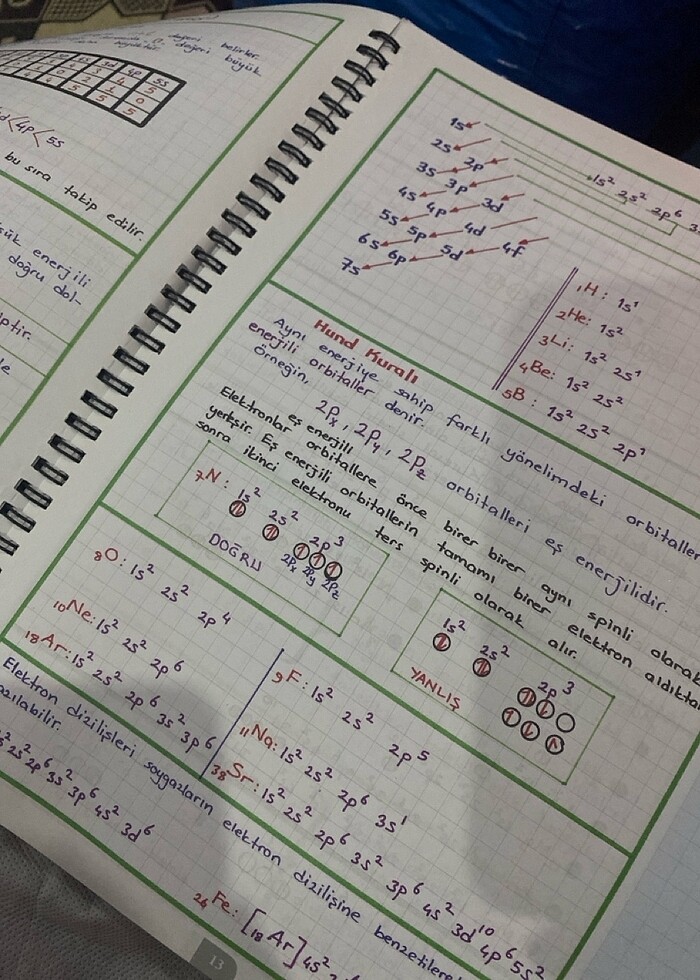 değeri belirler.
değeri büyük
3d 4p 5s
4p < 5s
bu sıra takip edilir.
enerjili
doğru dol-
1s
2s 2p
3s 3p 3d
4s 4p 4d 4f
5s 5p 5d
6s 6p
7s
1s² 2s² 2p⁶
₁H: 1s¹
₂He: 1s²
₃Li: 1s² 2s¹
₄Be: 1s² 2s²
₅B: 1s² 2s² 2p¹
Hund Kuralı
Aynı enerjiye sahip farklı yönelimdeki orbitaller
enerjili orbitaller denir.
örneğin, 2Px, 2Py, 2Pz orbitalleri eş enerjilidir.
eş enerjili
Elektronlar orbitallere önce birer birer aynı spinli olarak
yerleşir. Eş enerjili orbitallerin tamamı birer elektron aldıktan
sonra ikinci elektronu ters spinli olarak alır.
₇N: 1s² 2s² 2p³
2Px 2Py 2Pz
DOĞRU
1s² 2s² 2p³
YANLIŞ
₈O: 1s² 2s² 2p⁴
₁₀Ne: 1s² 2s² 2p⁶
₁₈Ar: 1s² 2s² 2p⁶ 3s² 3p⁶
₉F: 1s² 2s² 2p⁵
₁₁Na: 1s² 2s² 2p⁶ 3s¹
₃₈Sr: 1s² 2s² 2p⁶ 3s² 3p⁶ 4s² 3d¹⁰ 4p⁶ 5s²
Elektron dizilişleri soygazların elektron dizilişine
2s² 2p⁶ 3s² 3p⁶ 4s² 3d⁶
Fe: [₁₈Ar] 4s²
13